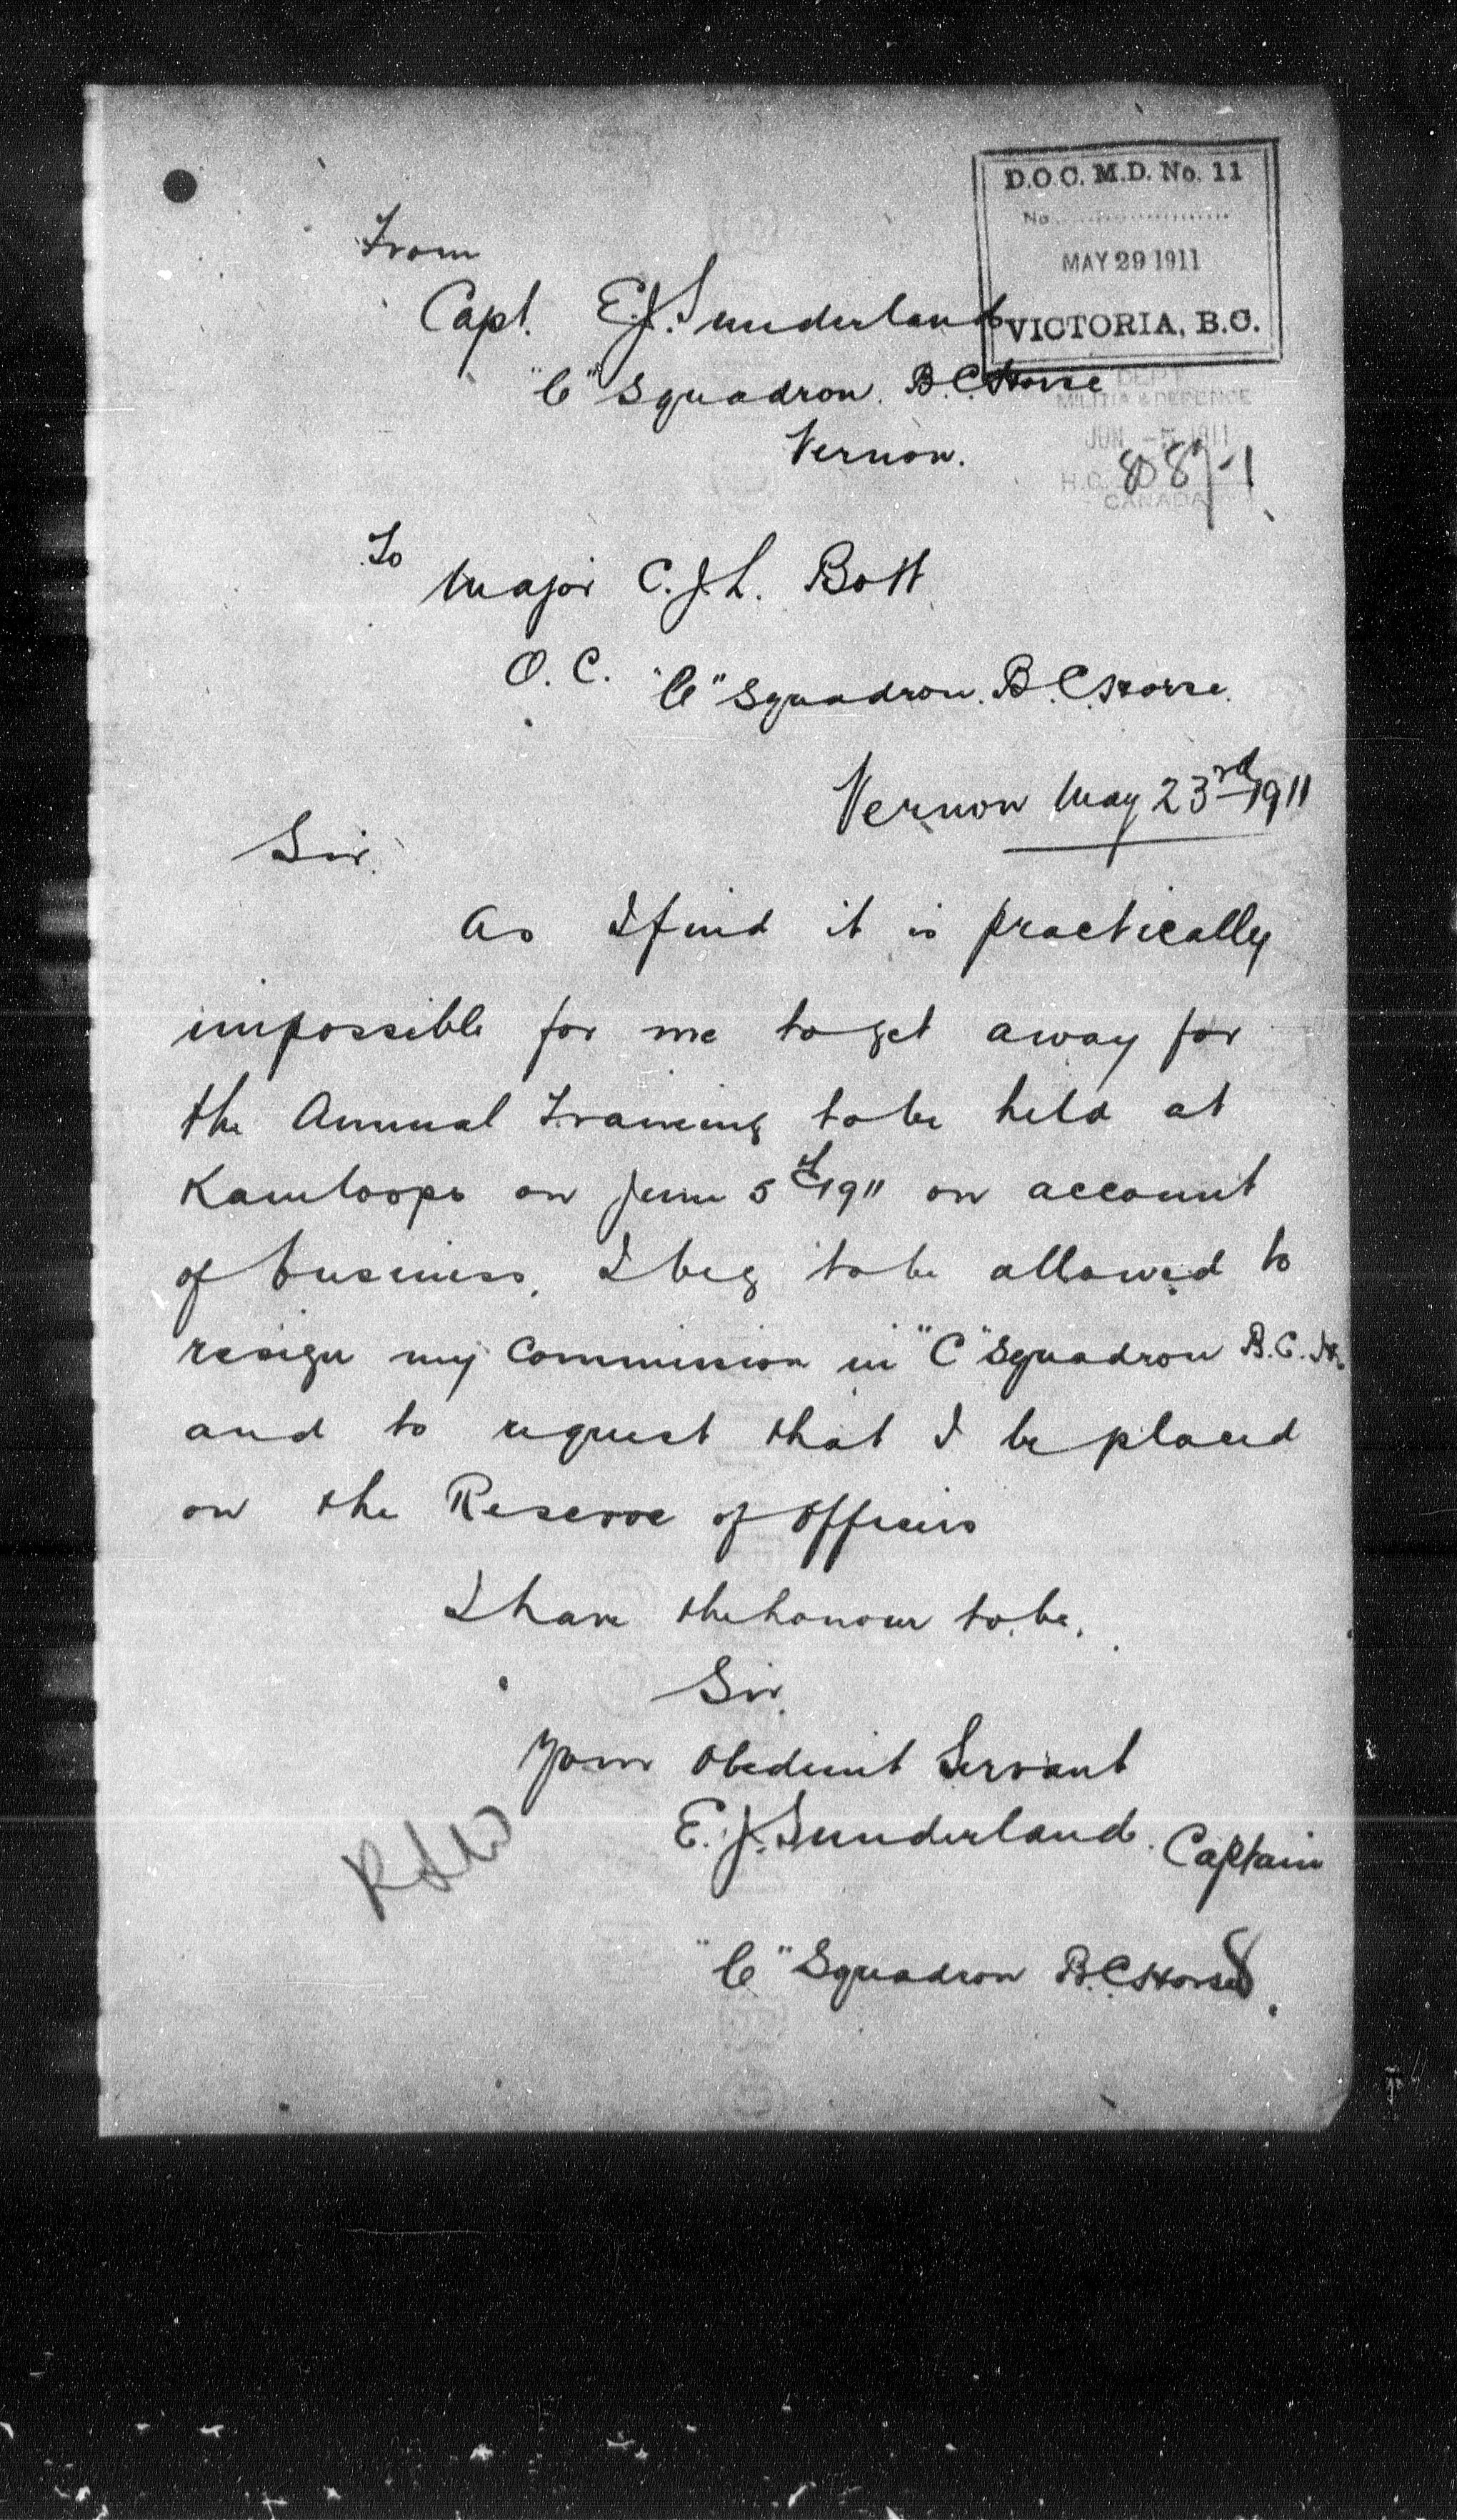 D.O.C. M.D. No. 11
No.
MAY 29 1911
VICTORIA, B.C.
From
Capt. E.J. Sunderland
"C" Squadron. B.C. Horse
Vernon.
DEPT.
MILITIA & DEFENCE
JUN 1911
H.Q. 887-1
CANADA
To
Major C.J.L. Bott
O.C. "C" Squadron. B.C. Horse.
Vernon May 23rd 1911
Sir.
As I find it is practically
impossible for me to get away for
the Annual Training to be held at
Kamloops on June 5th 1911 on account
of business, I beg to be allowed to
resign my Commission in "C" Squadron B.C. H.
and to request that I be placed
on the Reserve of Officers
I have the honour to be,
Sir.
Your Obedient Servant
E. J. Sunderland. Captain
"C" Squadron B.C. Horse